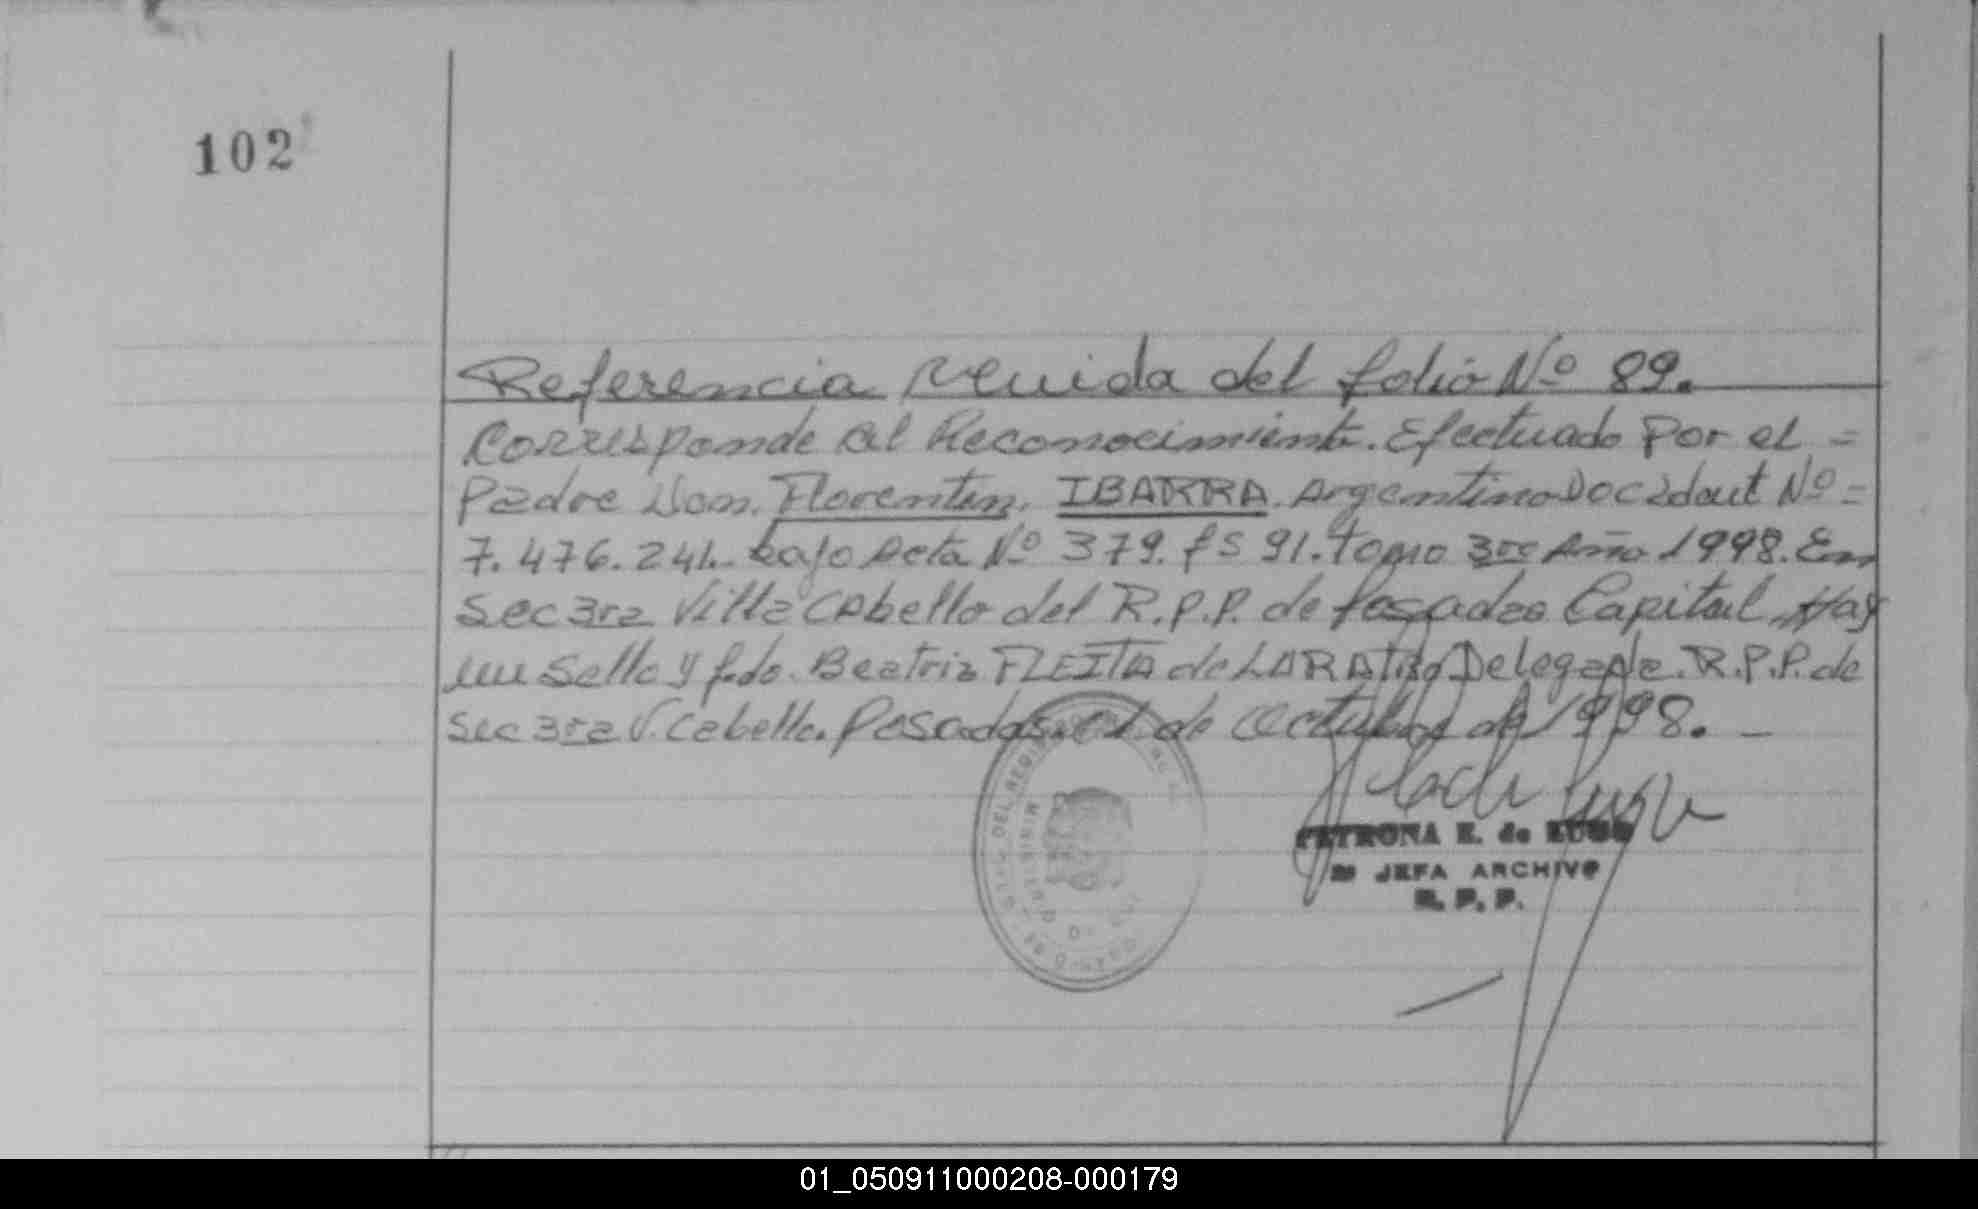 102
Referencia venida del folio Nº 89.
Corresponde al Reconocimiento. Efectuado Por el =
Padre Don. Florentin. IBARRA. Argentino Doc idout Nº =
7.476.241.- bajo Acta Nº 379. fs 91. tomo 3ro Año 1998. En
Sec 3ra Villa Cabello del R.P.P. de Posadas Capital, Hay
un Sello y fdo. Beatriz FLEITA de Delegada. R.P.P. de
Sec 3ra V. Cabello. Posadas. de Octubre de 1998. -
PETRONA E. de LUGO
JEFA ARCHIVO
R. P. P.
01_050911000208-000179